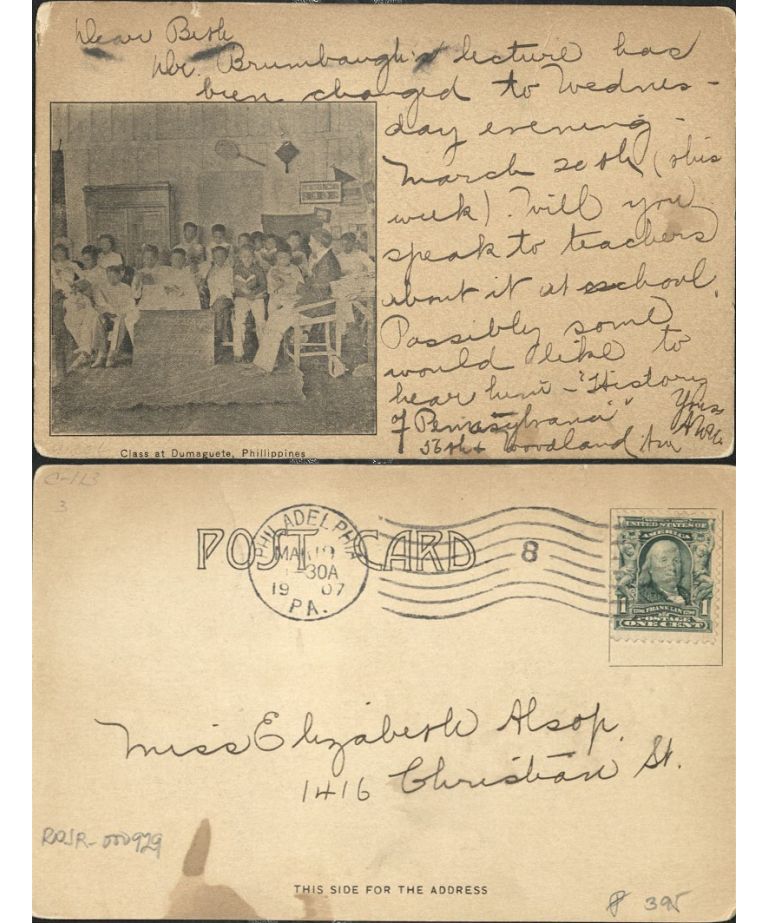 Dear Beth
Dr. Brumbaugh's lecture has
been changed to Wednes-
day evening -
March 20th (this
week). Will you
speak to teachers
about it at school.
Possibly some
would like to
hear him - "History
of Pennsylvania"
Yours
56th & Woodland Ave
Class at Dumaguete, Phillippines
C-113
3
POST CARD
PHILADELPHIA
MAR 19
30A
19 07
PA.
8
UNITED STATES OF
AMERICA
1 FRANKLIN 1
POSTAGE
ONE CENT
Miss Elizabeth Alsop.
1416 Christian St.
RDJR-000929
THIS SIDE FOR THE ADDRESS
395